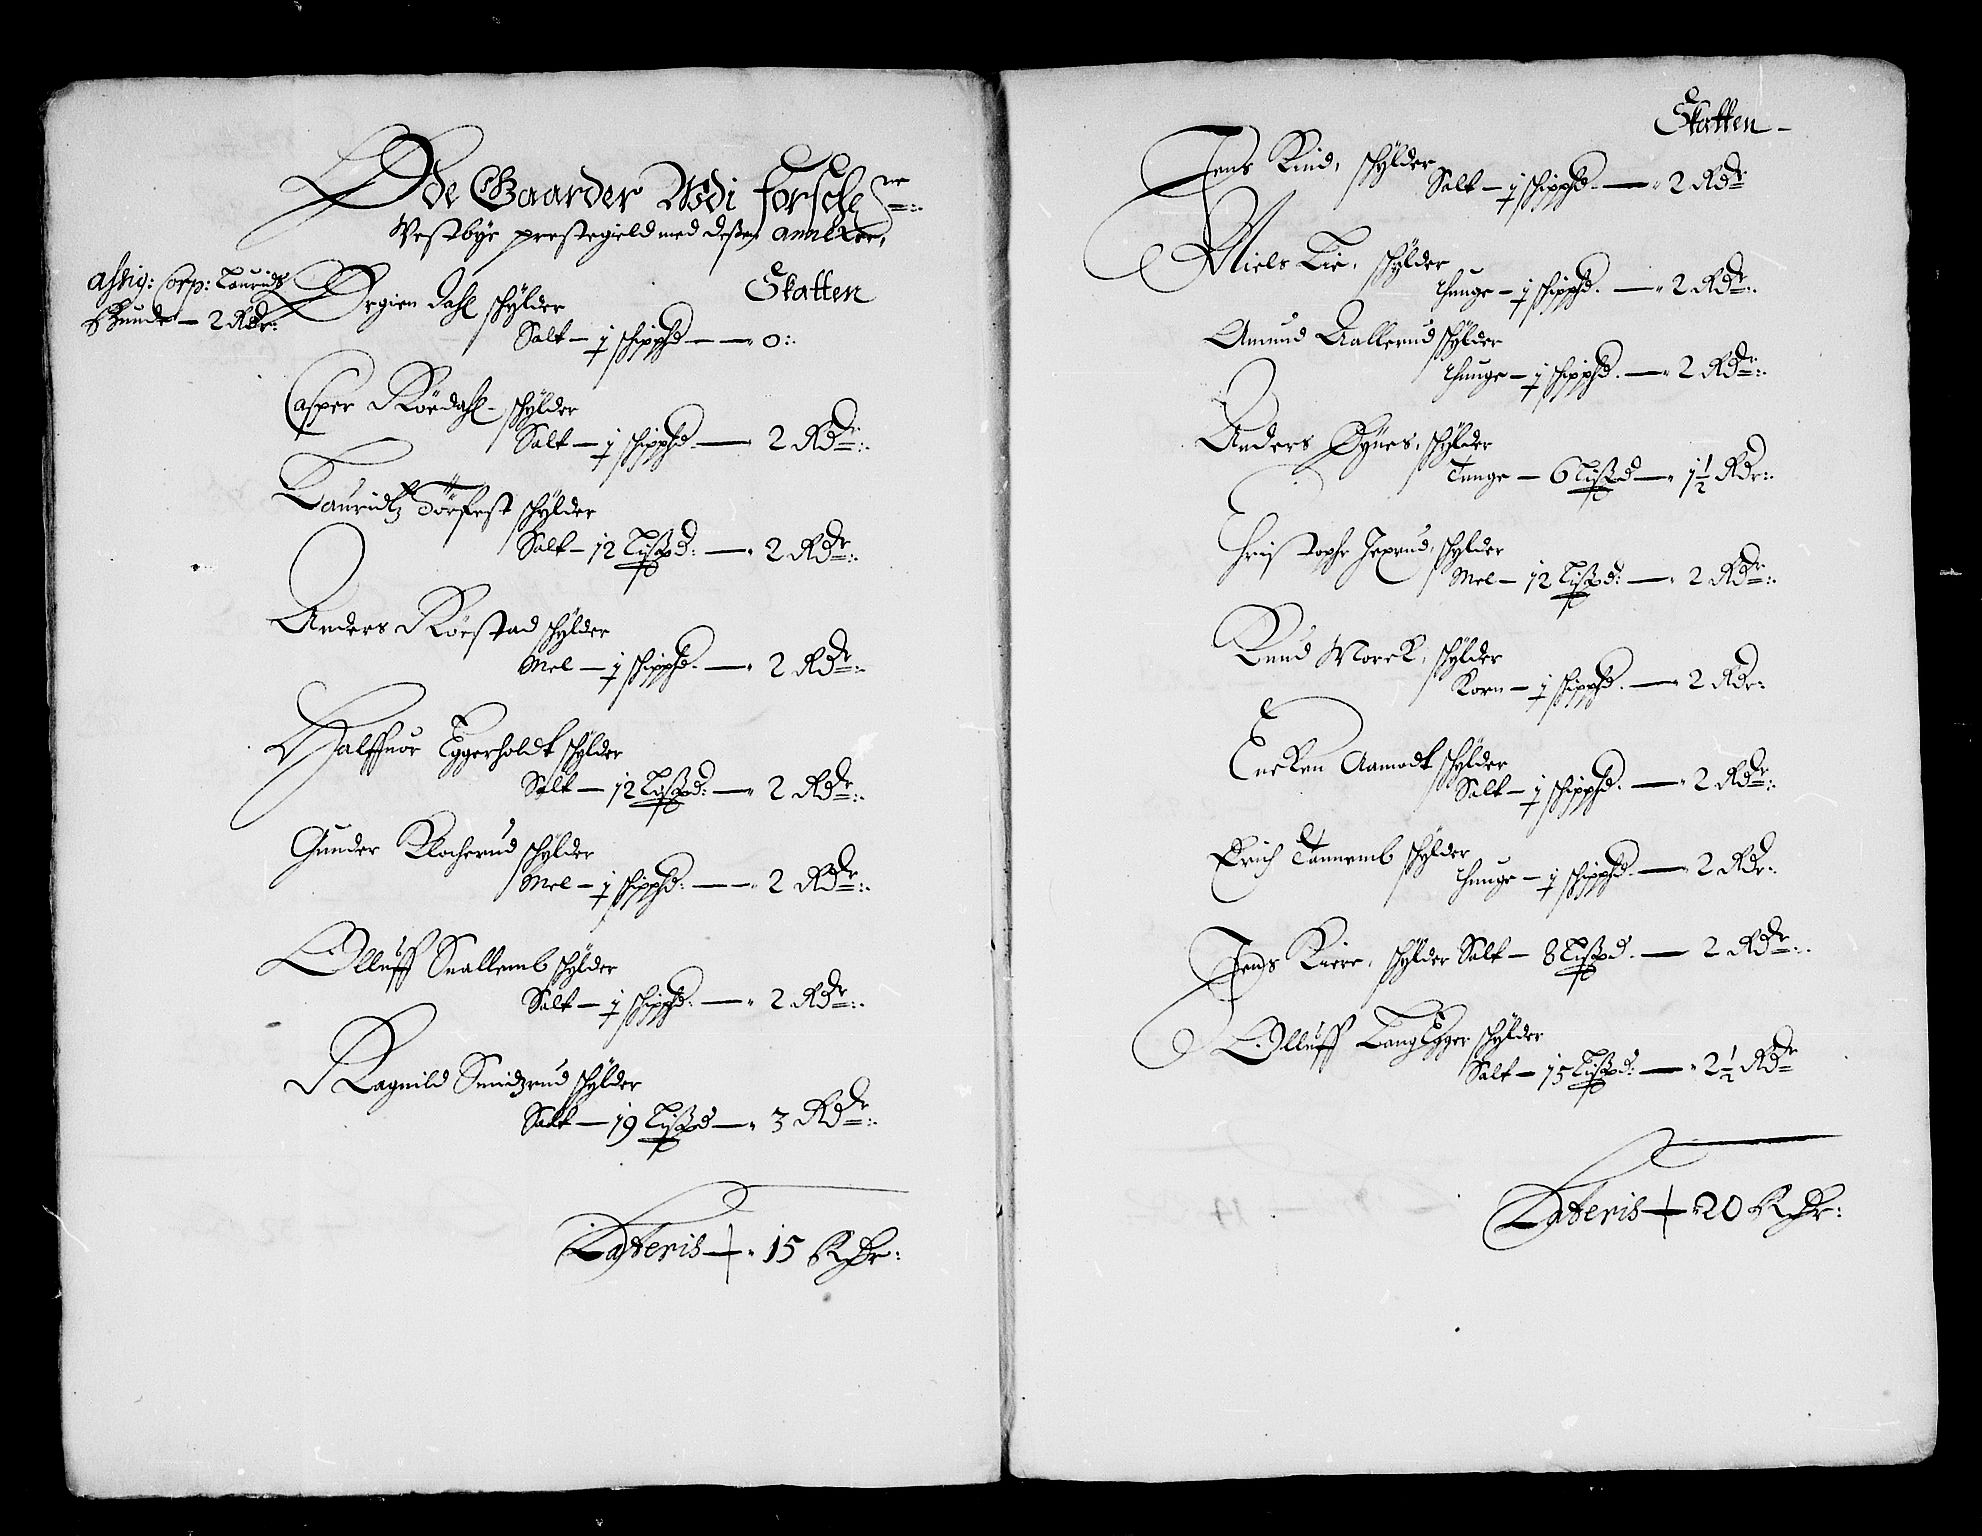 Øde Gaarder Wdi forschne
Vestbye prestegield med desser annexer,
Skatten
assig: Corp: Lauridtz
Bunde — 2 Rdr:
Ørgien Dahl schylder
Salt — j schippd — 0:
Casper Röedahl schylder
Salt — j schippd — 2 Rdr:
Lauridtz Törfest schylder
Salt — 12 Lißpd: — 2 Rdr:
Anders Röestad schylder
Mel — j schippd. — 2 Rdr:
Halffuor Eggerholdt schylder
Salt — 12 Lißpd: — 2 Rdr:
Gunder Klocherud schylder
Mel — j schippd: — 2 Rdr:
Olluff Snallemb schylder
Salt — j schippd: — 2 Rdr:
Ragnild Smidzrud schylder
Salt — 19 Lißpd — 3 Rdr:
Lateris — 15 Rdr:
Skatten
Jens Kind, schylder
Salt — j schippd. — 2 Rdr
Niels Lie, schylder
Thunge — j schippd. — 2 Rdr:
Amund Aallerud schylder
Thunge — j schippd. — 2 Rdr:
Anders Øynes, schylder
Tunge — 6 Lißpd — 1½ Rdr:
Christophr Jexrud, schylder
Mel — 12 Lißpd: — 2 Rdr:
Knud Morck, schylder
Korn — j schippd. — 2 Rdr:
Eneken Aamodt schylder
Salt — j schippd. — 2 Rdr:
Erich Tannemb schylder
Thunge — j schippd. — 2 Rdr:
Jens Kiere, schylder Salt — 8 Lißpd. — 2 Rdr:
Olluff Langegger schylder
Salt — 15 Lißpd: — 2½ Rdr
Lateris — 20 Rdr: